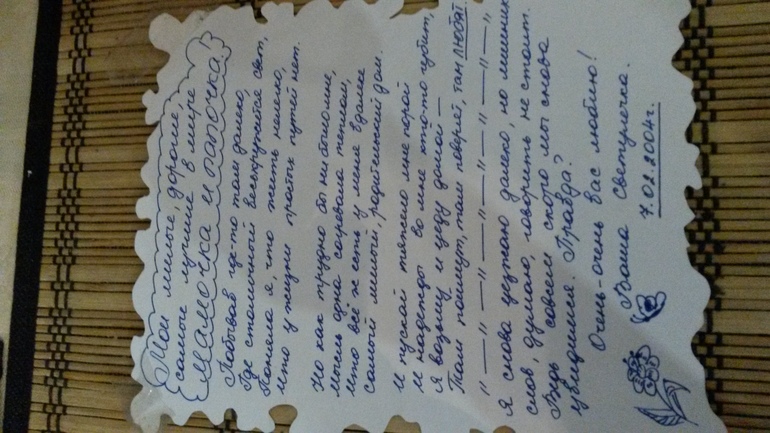 Мои милые, дорогие,
самые лучшие в мире
мамочка и папочка!
Побывав где-то там далеко,
Где столичный воскружается свет,
Поняла я, что жить нелегко,
Что у жизни простых путей нет.
Но как трудно бы ни было мне,
Мысль одна согревала теплом,
Что всё ж есть у меня вдалеке
Самый милый, родительский дом.
И пускай тяжело мне порой
И надежды во мне кто-то губит,
Я возьму и уеду домой —
Там поймут, там поверят, там любят.
" — " — " — " — " — " — " — "
Я снова уезжаю далеко, но лишних
слов, думаю, говорить не стоит.
Ведь совсем скоро мы снова
увидимся. Правда?
Очень-очень вас люблю!
Ваша Светулечка.
7.02.2004г.